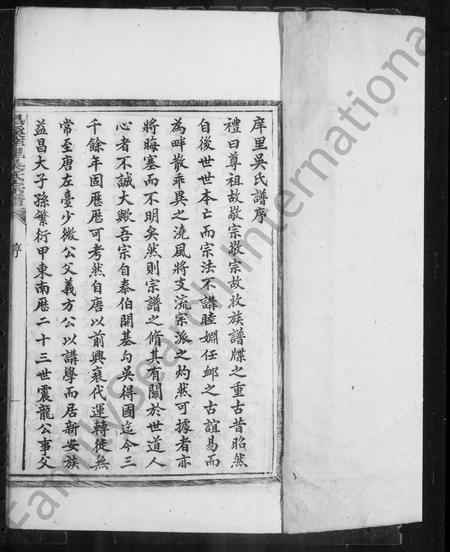 庠里吳氏譜序
禮曰尊祖故敬宗敬宗故收族譜牒之重古昔昭然
自後世世本亡而宗法不講睦婣任卹之古誼易而
為畔散乖異之澆風將支流宗派之灼然可據者亦
將晦塞而不明矣然則宗譜之脩其有關於世道人
心者不誠大歟吾宗自泰伯開基句吳得國迄今三
千餘年固歷歷可考然自唐以前興衰代運轉徙無
常至唐左臺少微公父義方公以講學而居新安族
益昌大子孫繁衍甲東南歷二十三世震龍公事父
序
FamilySearch International